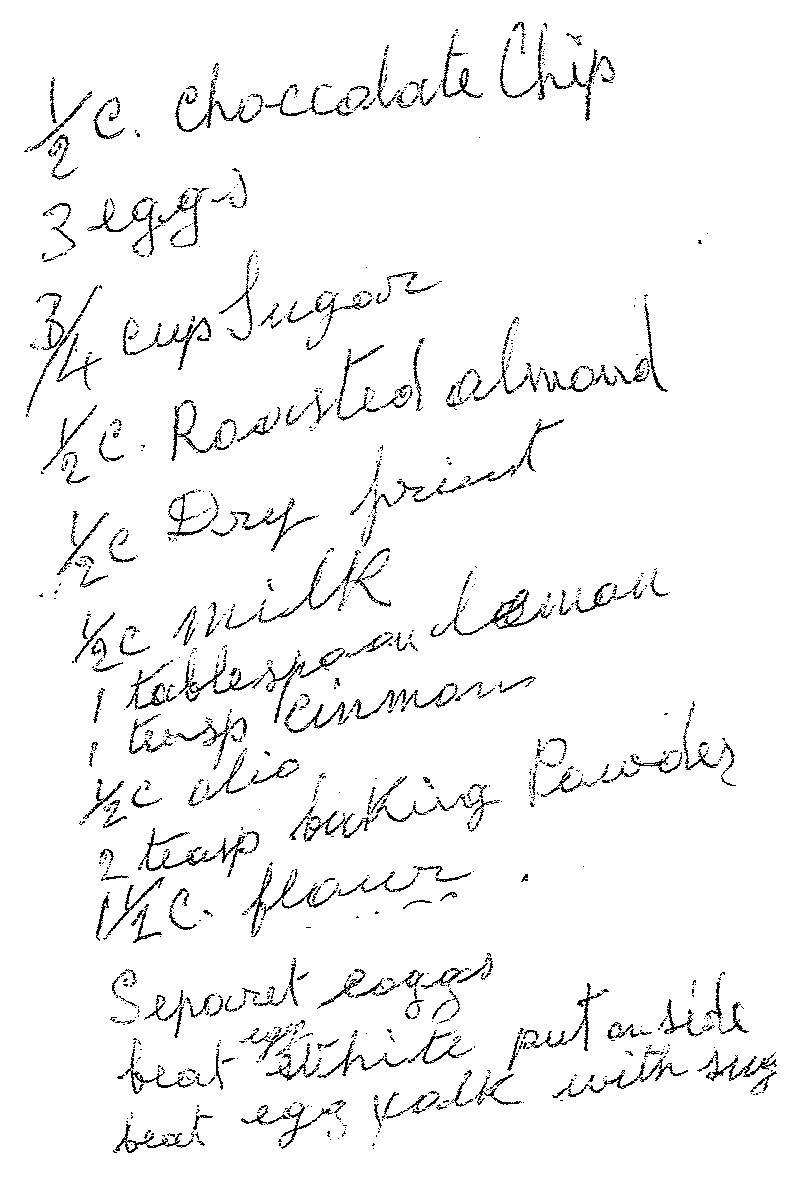 1/2 C. Choccolate Chip
3 eggs
3/4 cup Sugar
1/2 C. Roasted almond
1/2 C Dry friut
1/2 C milk
1 tablespoon lemon
1 teasp cinmon
1/2 C olio
2 teasp baking Powder
1 1/2 C. flour
Separet eaggs
beat egg White put on side
beat egg yolk with sug